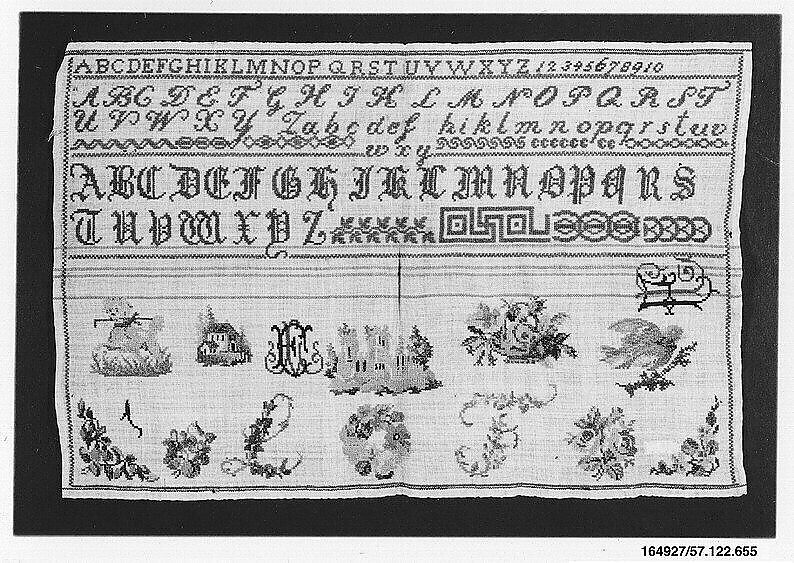 ABCDEFGHIKLMNOP QRSTUVWXYZ 12345678910
ABCDEFGHIKLMNOPQRST
UVWXYZabcdef hiklmnopqrstuv
wxy
ABCDEFGHIKLMNOPQRS
TUVWXYZ
164927/57.122.655